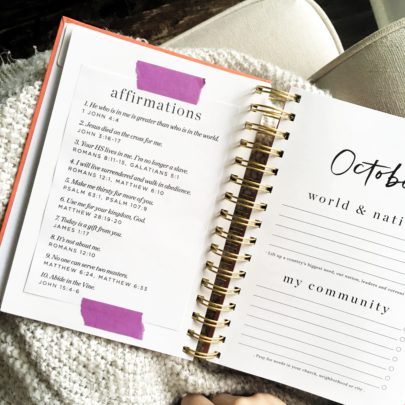 affirmations
1. He who is in me is greater than who is in the world.
1 JOHN 4:4
2. Jesus died on the cross for me.
JOHN 3:16-17
3. Your HS lives in me. I'm no longer a slave.
ROMANS 8:11-15, GALATIANS 5:1
4. I will live surrendered and walk in obedience.
ROMANS 12:1, MATTHEW 6:10
5. Make me thirsty for more of you.
PSALM 63:1, PSALM 107:9
6. Use me for your kingdom, God.
MATTHEW 28:19-20
7. Today is a gift from you.
JAMES 1:17
8. It's not about me.
ROMANS 12:10
9. No one can serve two masters.
MATTHEW 6:24, MATTHEW 6:33
10. Abide in the Vine.
JOHN 15:4-6
Octobe
world & nati
Lift up a country's biggest need, our nation, leaders and curren
my community
Pray for needs in your church, neighborhood or city